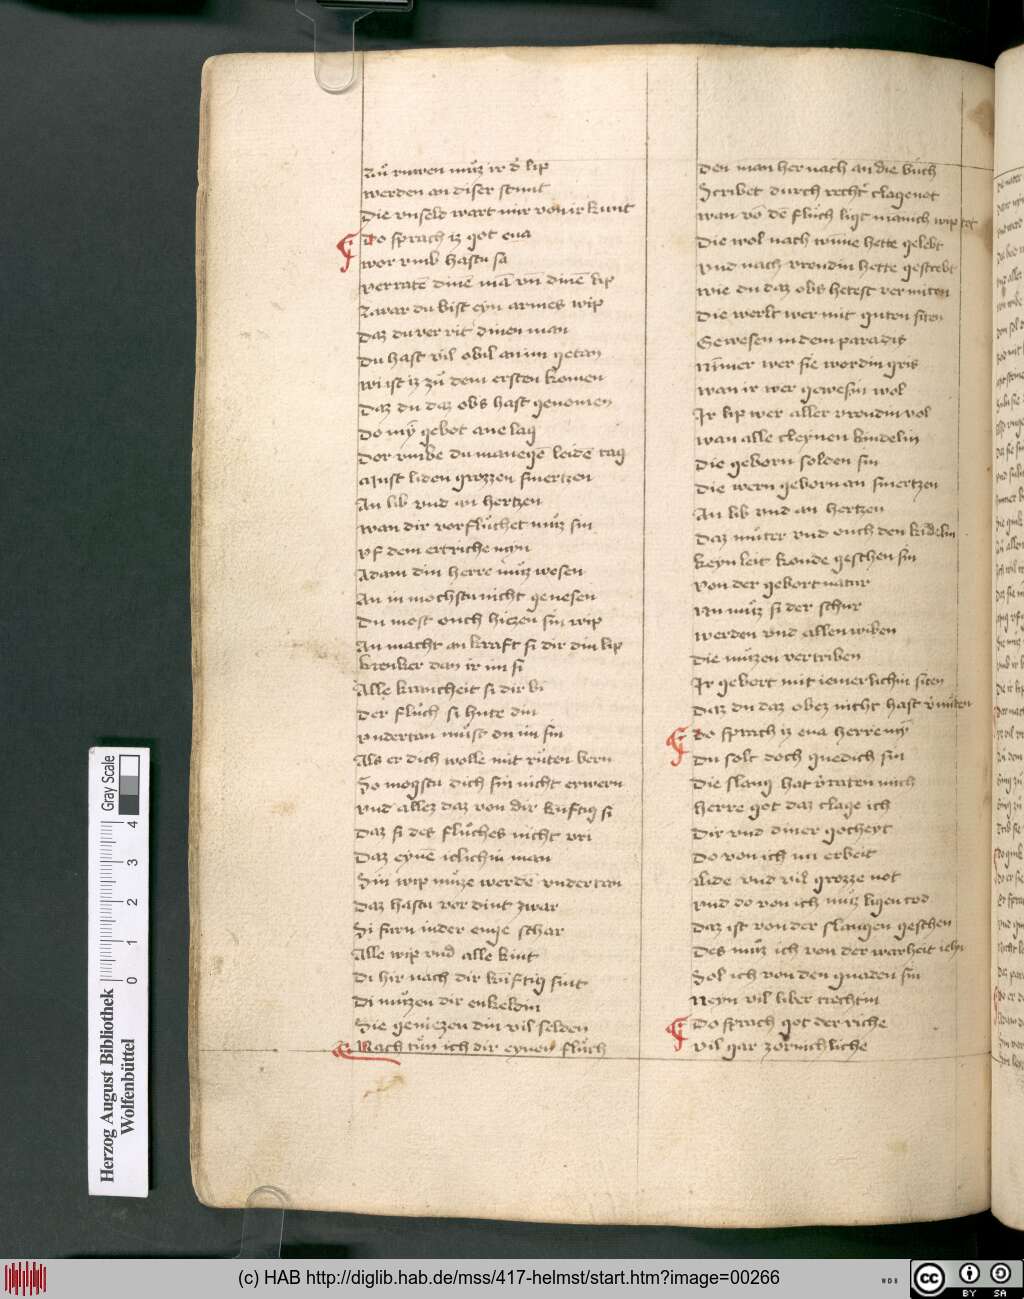 Zů ruwen můz ir d' lip
werden an diser stunt
Die vnseld wart mir von ir kunt
Do sprach iz got eua
wor vmb hastu sa
verratē dinē mā vn̄ dinē lip
Zwar du bist eyn armes wip
Daz du ver rit dinen man
Du hast vil obil an im getan
wi ist iz zů dem ersten komen
Daz du daz obs hast genomen
Do mȳ gebot ane lag
Dor vmbe du manegē leidē tag
Must liden grozzen smertzen
An lib vnd an hertzen
wan dir vorflůchet můz sin
vf dem ertriche myn
Adam din herre můz wesen
An in mochstu nicht genesen
Du most ouch hiezen sin wip
An macht an kraft si dir din lip
krenker dan ir im si
Alle krancheit si dir bi
Der flůch si hute din
vndertan můst du im sin
Als er dich wolle mit růten bern
So mogstu dich sin nicht erwern
vnd allez daz von dir kůftig si
Daz si des flůches nicht vri
Daz eynē iclichin man
Sin wip můze werdē vndertan
Daz hastu vor dint zwar
Si farn in der enge schar
Alle wip vnd alle kint
Di hir nach dir kůftig sint
Di můzen dir enkeldin
Sie geniezen din vil selden
Nach tůn ich dir eynen flůch
Den man her nach an die bůch
Scribet durch recht' clagenot
wan vō dē flůch ligt manich wip tot
Die wol nach wůne hette gelebt
vnd nach vroudin hette gestrebt
wie du daz obs hetest vermiten
Die werlt wer mit guten siten
Gewesen in dem paradis
Nimer wer sie wordin gris
wan ir wer gewesin wol
Ir lip wer aller vroudin vol
wan alle cleynen kindelin
Die geborn solden sin
Die wern geborn an smertzen
An lib vnd an hertzen
Daz můter vnd ouch den kidelin
keyn leit konde geschen sin
von der gebort natur
Nu můz si der schur
werden vnd allen wiben
Die můzen vertriben
Ir gebort mit iemerlichin siten
Daz du daz obez nicht hast v'miten
Do sprach iz eua herre mȳ
Du solt doch gnedich sin
Die slang hat v'raten mich
herre got daz clage ich
Dir vnd diner gotheyt
Do von ich nu erbeit
Lide vnd vil grozze not
vnd do von ich můz ligen tod
Daz ist von der slangen geschen
Des můz ich von der warheit iehn
Sol ich von den gnaden sin
Neyn vil liber trechtin
Do sprach got der riche
vil gar zornichliche
Herzog August Bibliothek
Wolfenbüttel
0 1 2 3 4
Gray Scale
(c) HAB http://diglib.hab.de/mss/417-helmst/start.htm?image=00266
WDB
cc BY SA